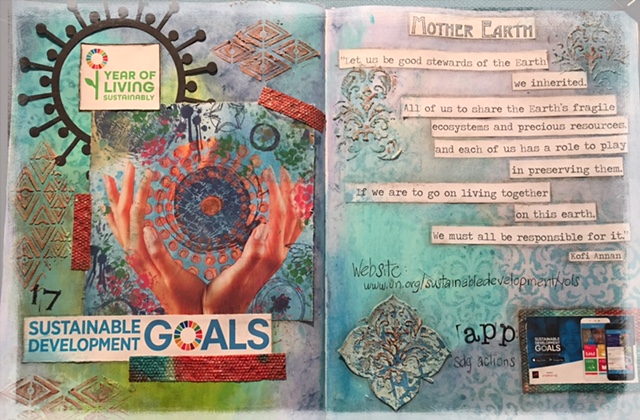 YEAR OF
LIVING
SUSTAINABLY
17
SUSTAINABLE
DEVELOPMENT
GOALS
MOTHER EARTH
"Let us be good stewards of the Earth
we inherited.
All of us to share the Earth's fragile
ecosystems and precious resources.
and each of us has a role to play
in preserving them.
If we are to go on living together
on this earth.
We must all be responsible for it."
Kofi Annan
Website:
'app
sdg actions
SUSTAINABLE
DEVELOPMENT
GOALS